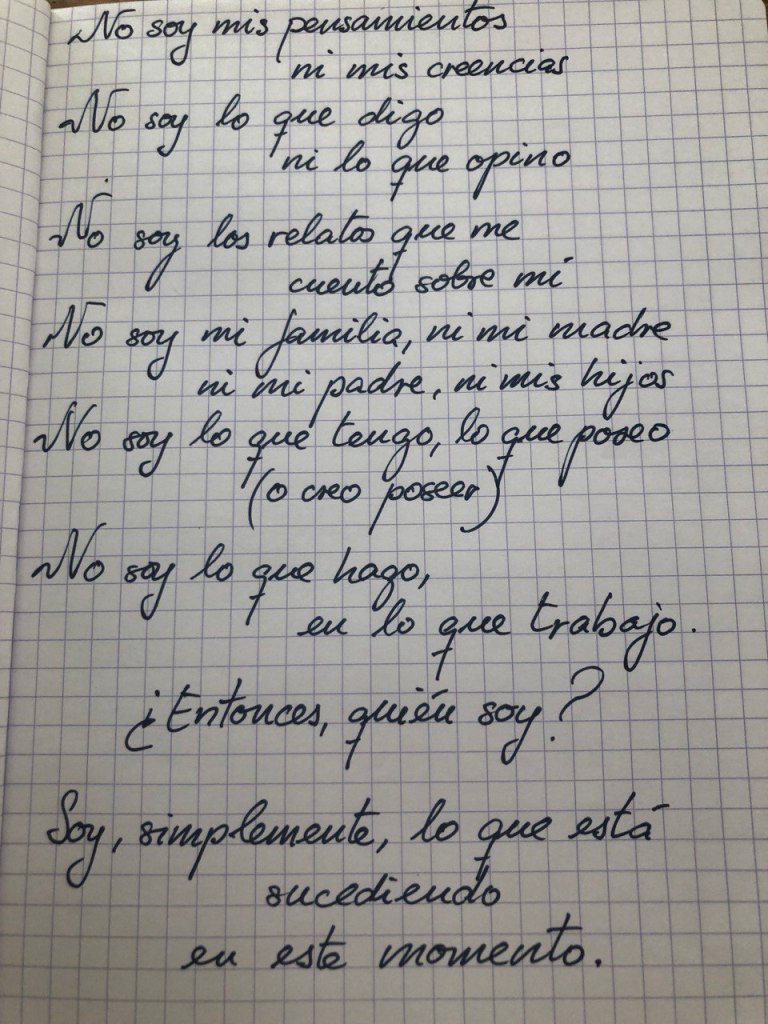 No soy mis pensamientos
ni mis creencias
No soy lo que digo
ni lo que opino
No soy los relatos que me
cuento sobre mí
No soy mi familia, ni mi madre
ni mi padre, ni mis hijos
No soy lo que tengo, lo que poseo
(o creo poseer)
No soy lo que hago,
en lo que trabajo.
¿Entonces, quién soy?
Soy, simplemente, lo que está
sucediendo
en este momento.